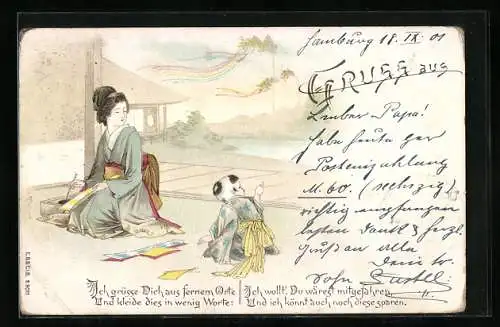 Hamburg 18. IX. 01
GRUSS aus
Lieber Papa!
Habe heute per
Posteinzahlung
M. 60. (sechzig)
richtig empfangen
besten Dank & herzl.
Gruß an alle
Dein tr.
Sohn
Ich grüsse Dich aus fernem Orte
Und kleide dies in wenig Worte:
Ich wollt', Du wärest mitgefahren
Und ich könnt auch noch diese sparen.